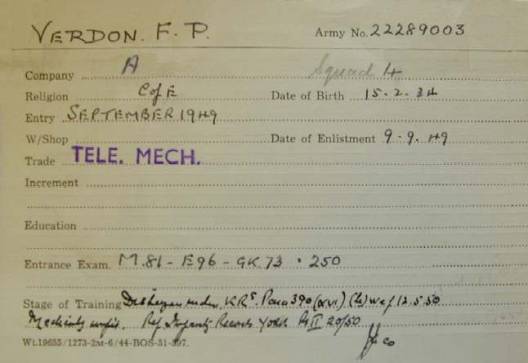 VERDON. F. P. Army No. 22289003
Company A Squad 4
Religion C of E Date of Birth 15.2.34
Entry SEPTEMBER 1949
W/Shop Date of Enlistment 9-9-49
Trade TELE. MECH.
Increment
Education
Entrance Exam. M.81 - E96 - GK.73 . 250
Stage of Training under K.Rs. Para 390 (XVI) wef 12.5.50
Medically unfit. Ref Infantry Records York Pt II 20/50
WL19655/1273-2M-6/44-BOS-31-397.